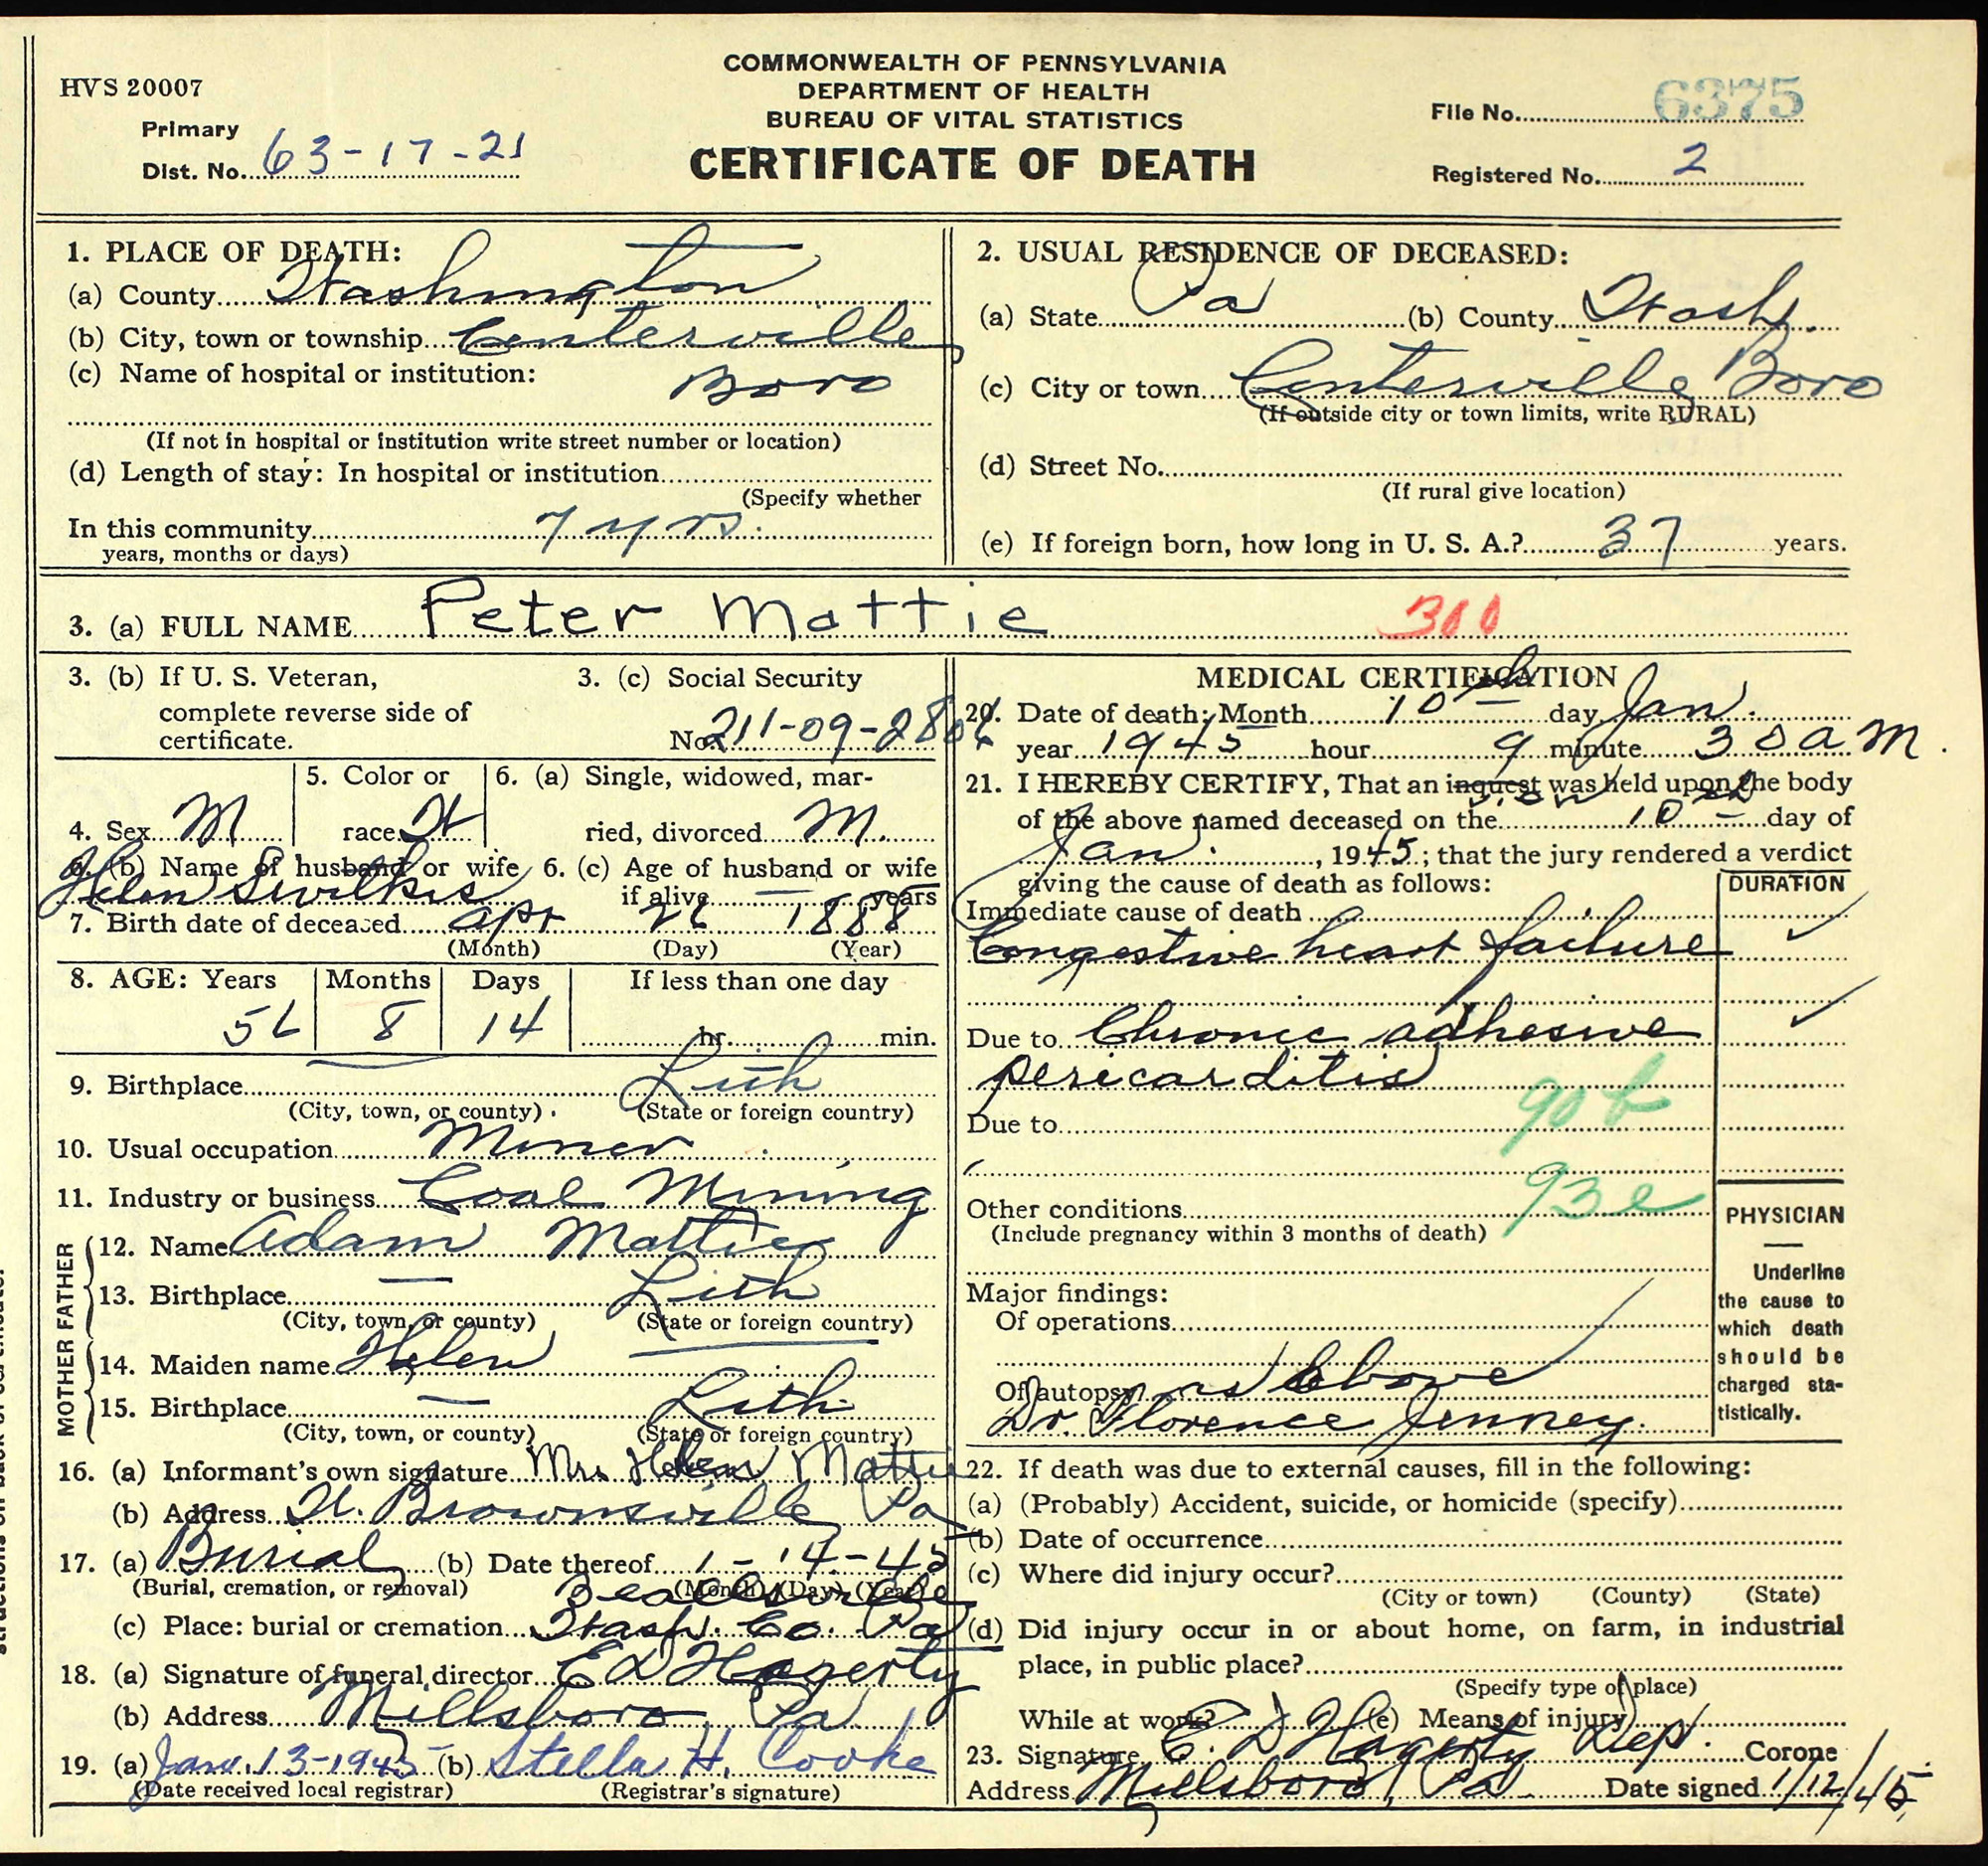 HVS 20007
Primary
Dist. No. 63-17-21
COMMONWEALTH OF PENNSYLVANIA
DEPARTMENT OF HEALTH
BUREAU OF VITAL STATISTICS
CERTIFICATE OF DEATH
File No. 6375
Registered No. 2
1. PLACE OF DEATH:
(a) County Washington
(b) City, town or township Centerville
(c) Name of hospital or institution: Boro
(If not in hospital or institution write street number or location)
(d) Length of stay: In hospital or institution
(Specify whether
In this community 7 yrs.
years, months or days)
2. USUAL RESIDENCE OF DECEASED:
(a) State Pa (b) County Wash.
(c) City or town Centerville Boro
(If outside city or town limits, write RURAL)
(d) Street No.
(If rural give location)
(e) If foreign born, how long in U. S. A.? 37 years.
3. (a) FULL NAME Peter Mattie 300
3. (b) If U. S. Veteran,
complete reverse side of
certificate.
3. (c) Social Security
No. 211-09-2806
4. Sex M
5. Color or
race W
6. (a) Single, widowed, mar-
ried, divorced M.
6. (b) Name of husband or wife
Helen Swilkis
6. (c) Age of husband or wife
if alive — years
7. Birth date of deceased Apr 26 1888
(Month) (Day) (Year)
8. AGE: Years Months Days If less than one day
56 8 14 hr. min.
9. Birthplace Lith
(City, town, or county) (State or foreign country)
10. Usual occupation Miner
11. Industry or business Coal Mining
FATHER
12. Name Adam Mattie
13. Birthplace — Lith
(City, town, or county) (State or foreign country)
MOTHER
14. Maiden name Helen
15. Birthplace — Lith
(City, town, or county) (State or foreign country)
16. (a) Informant's own signature Mrs Helen Mattie
(b) Address W. Brownsville Pa
17. (a) Burial (b) Date thereof 1-14-45
(Burial, cremation, or removal) (Month) (Day) (Year)
Beallsville
(c) Place: burial or cremation Wash. Co. Pa
18. (a) Signature of funeral director E D Hagerty
(b) Address Millsboro, Pa.
19. (a) Jan. 13-1945 (b) Stella H. Cooke
(Date received local registrar) (Registrar's signature)
MEDICAL CERTIFICATION
20. Date of death: Month 10th day Jan.
year 1945 hour 9 minute 30 a M.
21. I HEREBY CERTIFY, That an inquest was held upon the body
view
of the above named deceased on the 10th day of
Jan., 1945; that the jury rendered a verdict
giving the cause of death as follows:
DURATION
Immediate cause of death
Congestive heart failure
Due to Chronic adhesive
pericarditis
90b
Due to
93e
Other conditions
(Include pregnancy within 3 months of death)
Major findings:
Of operations
Of autopsy as above
Dr. Florence Jenney.
PHYSICIAN
Underline
the cause to
which death
should be
charged sta-
tistically.
22. If death was due to external causes, fill in the following:
(a) (Probably) Accident, suicide, or homicide (specify)
(b) Date of occurrence
(c) Where did injury occur?
(City or town) (County) (State)
(d) Did injury occur in or about home, on farm, in industrial
place, in public place?
(Specify type of place)
While at work? (e) Means of injury
23. Signature E. D Hagerty Dep. Corone
Address Millsboro, Pa Date signed 1/12/45